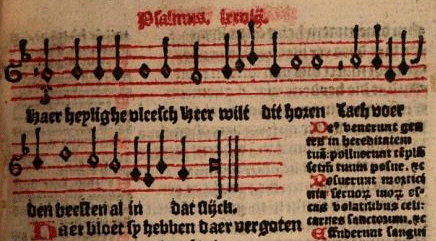 Psalmus. lxxviij.
Haer heylighe vleesch Heer wilt dit horen Lach voer
den beesten al in dat slijck.
Haer bloet sy hebben daer vergoten
De⁹ venerunt gen
tes in hereditatem
tuā: polluerunt tēplū
sctm̄ tuum posue. ⁊c
Posuerunt mortici
nia seruorꝝ tuorꝝ es⸗
cas volatilibus celi:
carnes sanctorum. ⁊c
Effuderunt sangui